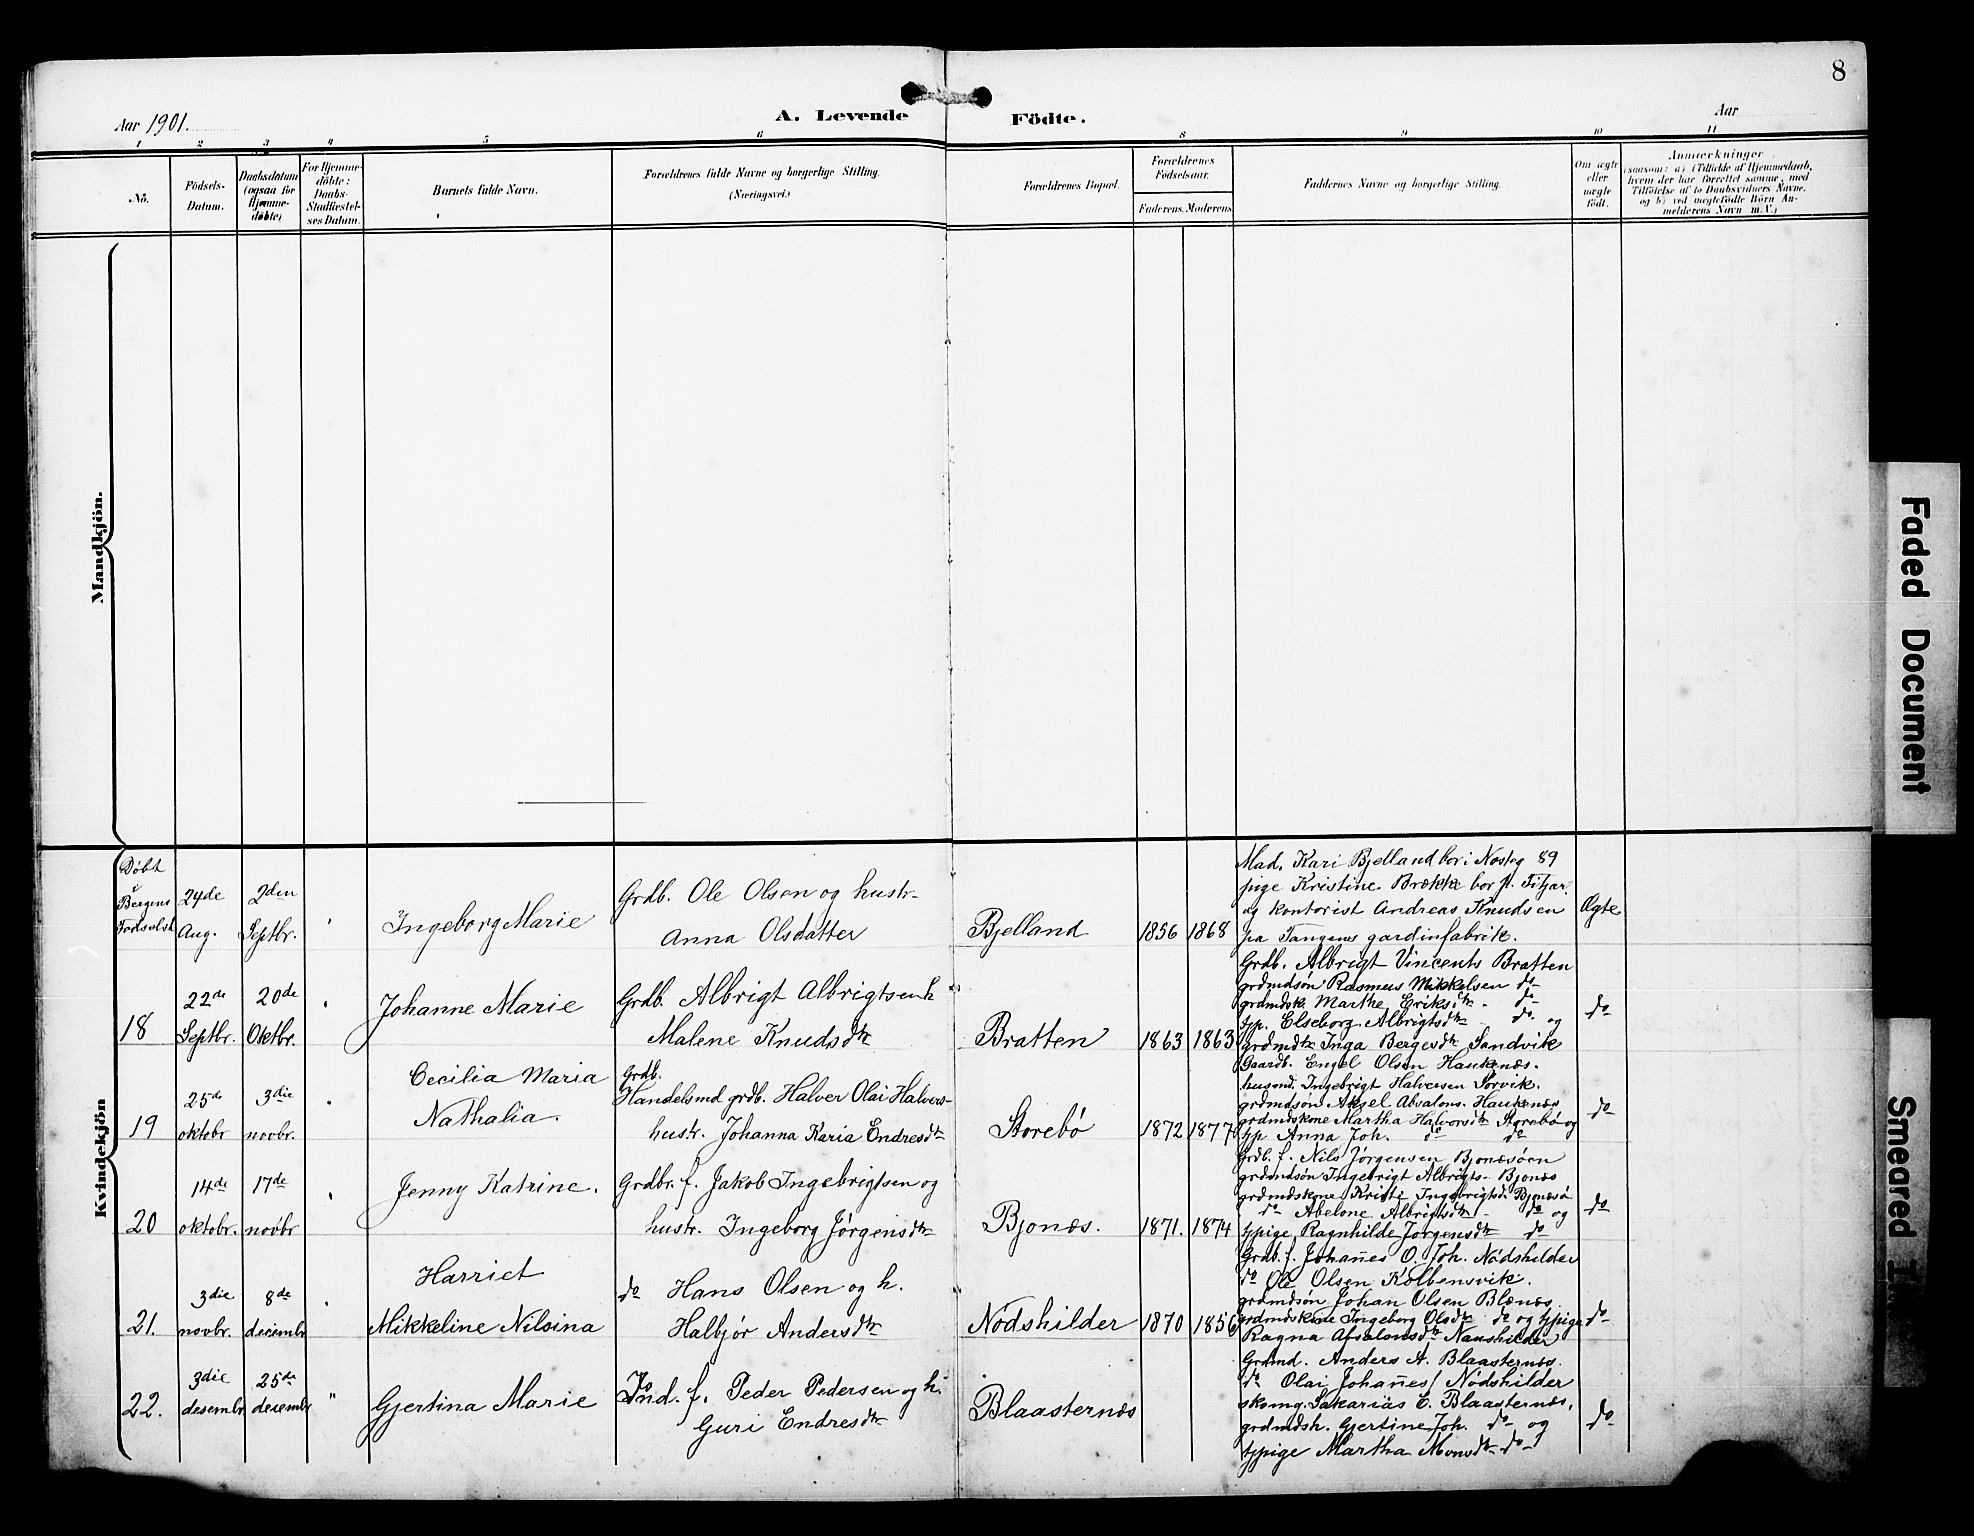 8
Aar 1901.
A. Levende Födte.
Aar
1 2 3 4 5 6 8 9 10 11
No.
Födsels-
Datum.
Daabsdatum
(ogsaa for
Hjemme-
döbte)
For Hjemme-
döbte:
Daabs-
Stadfæstel-
ses Datum.
Barnets fulde Navn.
Forældrenes fulde Navne og borgerlige Stilling.
(Næringsvei.)
Forældrenes Bopæl.
Forældrenes
Födselsaar.
Faderens. Moderens
Faddernes Navne og borgerlige Stilling.
Om ægte
eller
uægte
födt.
Anmærkninger
(saasom: a) i Tilfælde af Hjemmedaab,
hvem der har forrettet samme, med
Tilföielse af to Daabsvidners Navne.
og b) ved uægtefödte Börn An-
melderens Navn m. V.)
Mandkjön.
Kvindekjön
Döbt
i
Bergens
Födselsst
24de
Aug.
2den
Septbr.
Ingeborg Marie
Grdb. Ole Olsen og hustr.
Anna Olsdatter
Bjelland
1856 1868
Mad. Kari Bjelland bor i Nosteg 89
pige Kristine Brække bor p. Fitjar
og kontorist Andreas Knudsen
pa Tangens gardinfabrik.
Ægte
18
22de
Septbr.
20de
Oktbr.
Johanne Marie
Grdb. Albrigt Albrigtsen h
Malene Knudsdtr
Bratten
1863 1863
Grdb. Albrigt Vincents Bratten
grdmdsøn Rasmus Mikkelsen do
grdmdsk. Marthe Eriksdtr - do
tjp. Elseborg Albrigtsdtr - do og
grdmdtr Inga Bergesdtr Sandvik
do
19
25de
oktobr
3die
novbr.
Cecilia Maria
Nathalia.
Grdb.
Handelsmd grdb. Halver Olai Halvers-
hustr. Johanna Karia Endresdtr
Storebö
1872 1877
Gaardb. Engel Olsen Haukenæs.
husmd. Ingebrigt Halversen Sørvik.
grdmdsøn Aksel Absalons. Haukenæs
grdmdskone Martha Halvorsdtr Storebö og
tjp Anna Joh. do do
do
20
14de
oktobr.
17de
novbr
Jenny Katrine.
Grdbr. f. Jakob Ingebrigtsen og
hustr. Ingeborg Jørgensdtr
Bjonæs.
1871. 1874
Grdb. f. Nils Jørgensen Bjonæsöen
grdmdsøn Ingebrigt Albrigts. Bjonæs
grdmdskone Kristi Ingebrigtsd. Bjonæsö
do Abelone Albrigtsdtr - do og
tjpige Ragnhilde Jørgensdtr do
do
21.
3die
novbr.
8de
decembr
Harriet
Mikkeline Nilsina
do Hans Olsen og h.
Halbjør Andersdtr
Nödshilder
1870 1856
Grdb. f. Johannes O. Joh. Nödshilder
do Ole Olsen Kolbensvik.
grdmdsøn Johan Olsen Blænæs
grdmdskone Ingeborg Olsdtr do og tjpige
Ragna Absalonsdtr Naushilder
do
22.
3die
desembr
25de
desembr
"
Gjertina Marie
Ind. f. Peder Pedersen og h.
Guri Endresdtr
Blaasternæs
Grdmd. Anders A. Blaasternæs.
do Olai Johannes/ Nödshilder
skomg. Sakarias E. Blaasternæs,
grdmdsk. Gjertine Joh. do og
tjpige Martha Monsdtr do
do
Faded Document
Smeared